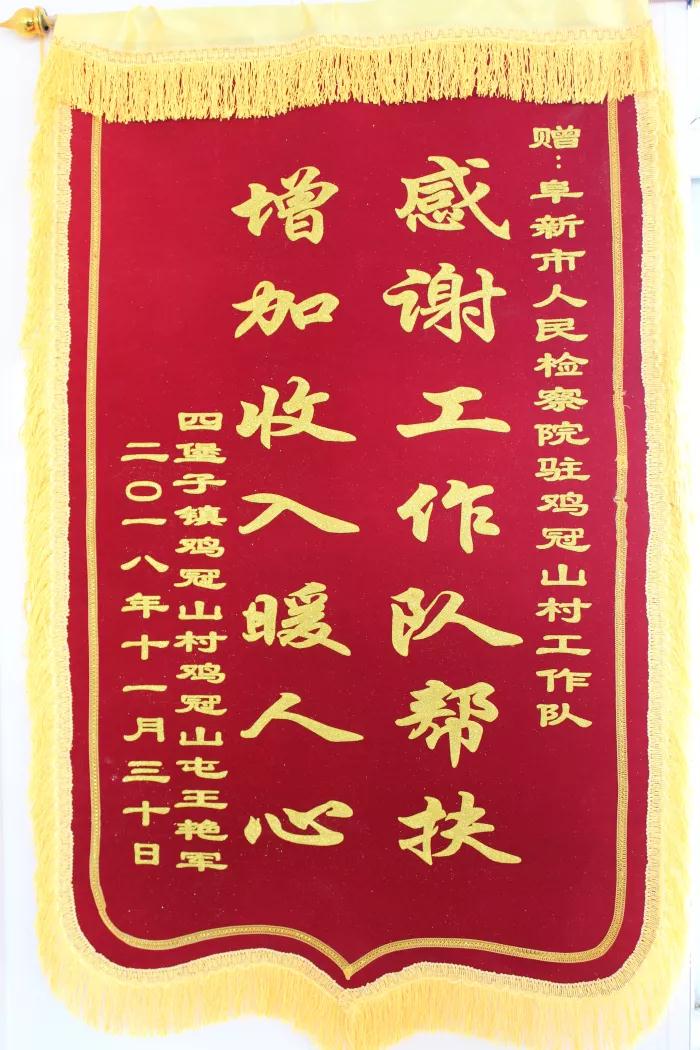 赠:阜新市人民检察院驻鸡冠山村工作队
感谢工作队帮扶
增加收入暖人心
四堡子镇鸡冠山村鸡冠山屯王艳军
二〇一八年十一月三十日